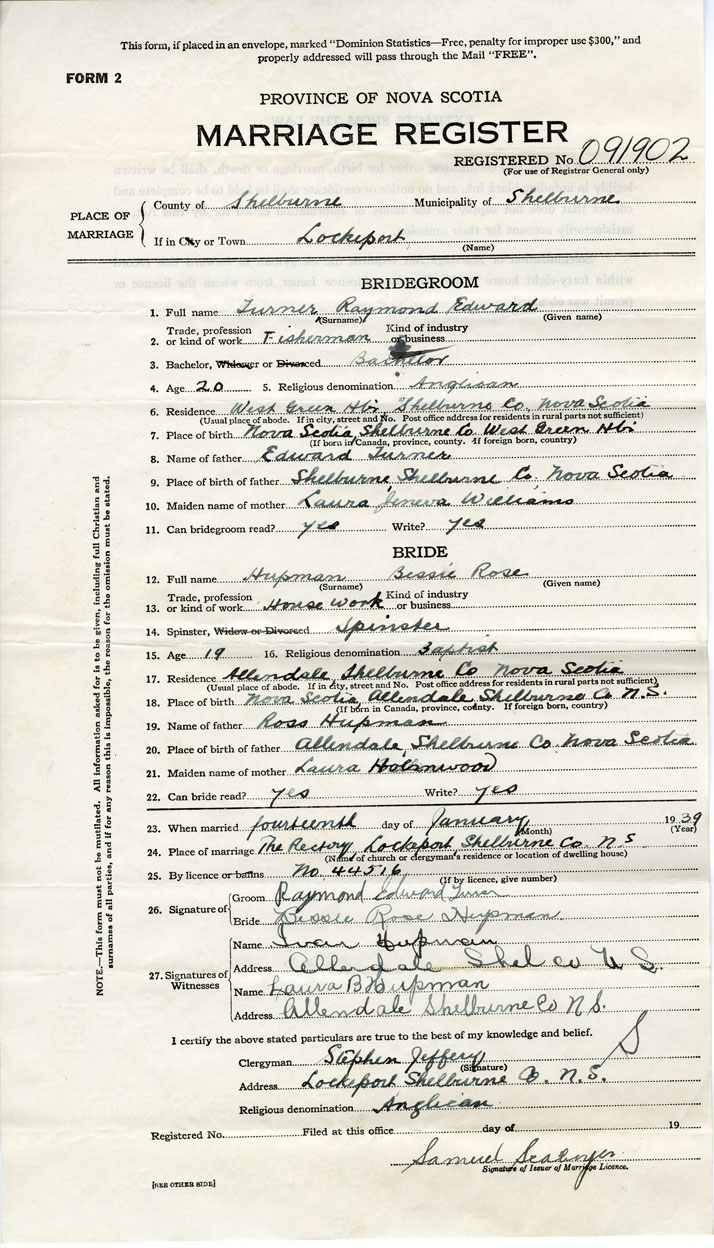 This form, if placed in an envelope, marked "Dominion Statistics—Free, penalty for improper use $300," and
properly addressed will pass through the Mail "FREE".
FORM 2
PROVINCE OF NOVA SCOTIA
MARRIAGE REGISTER
REGISTERED No. 091902
(For use of Registrar General only)
PLACE OF MARRIAGE
County of Shelburne Municipality of Shelburne
If in City or Town Lockeport
(Name)
BRIDEGROOM
1. Full name Turner Raymond Edward
(Surname) (Given name)
2. Trade, profession or kind of work Fisherman Kind of industry or business
3. Bachelor, Widower or Divorced Bachelor
4. Age 20 5. Religious denomination Anglisan
6. Residence West Green Hbr, Shelburne Co, Nova Scotia
(Usual place of abode. If in city, street and No. Post office address for residents in rural parts not sufficient)
7. Place of birth Nova Scotia, Shelburne Co West Green Hbr
(If born in Canada, province, county. If foreign born, country)
8. Name of father Edward Turner
9. Place of birth of father Shelburne, Shelburne Co, Nova Scotia
10. Maiden name of mother Laura Jeneva Williams
11. Can bridegroom read? yes Write? yes
BRIDE
12. Full name Hupman Bessie Rose
(Surname) (Given name)
13. Trade, profession or kind of work House Work Kind of industry or business
14. Spinster, Widow or Divorced Spinster
15. Age 19 16. Religious denomination Baptist
17. Residence Allendale, Shelburne Co Nova Scotia
(Usual place of abode. If in city, street and No. Post office address for residents in rural parts not sufficient)
18. Place of birth Nova Scotia, Allendale, Shelburne Co N.S.
(If born in Canada, province, county. If foreign born, country)
19. Name of father Ross Hupman
20. Place of birth of father Allendale, Shelburne Co Nova Scotia
21. Maiden name of mother Laura
22. Can bride read? yes Write? yes
23. When married fourteenth day of January 1939
(Month) (Year)
24. Place of marriage The Rectory, Lockeport Shelburne Co. N S
(Name of church or clergyman's residence or location of dwelling house)
25. By licence or banns No. 44516
(If by licence, give number)
26. Signature of Groom Raymond Edward Turner
Bride Bessie Rose Hupman
27. Signatures of Witnesses
Name Ivan Hupman
Address Allendale Shel co N S.
Name Laura B Hupman
Address Allendale Shelburne Co N S.
I certify the above stated particulars are true to the best of my knowledge and belief.
Clergyman Stephen Jeffery
(Signature)
Address Lockeport Shelburne Co. N. S.
Religious denomination Anglican
Registered No. Filed at this office day of 19
Samuel
Signature of Issuer of Marriage Licence.
[SEE OTHER SIDE]
NOTE.—This form must not be mutilated. All information asked for is to be given, including full Christian and
surnames of all parties, and if for any reason this is impossible, the reason for the omission must be stated.